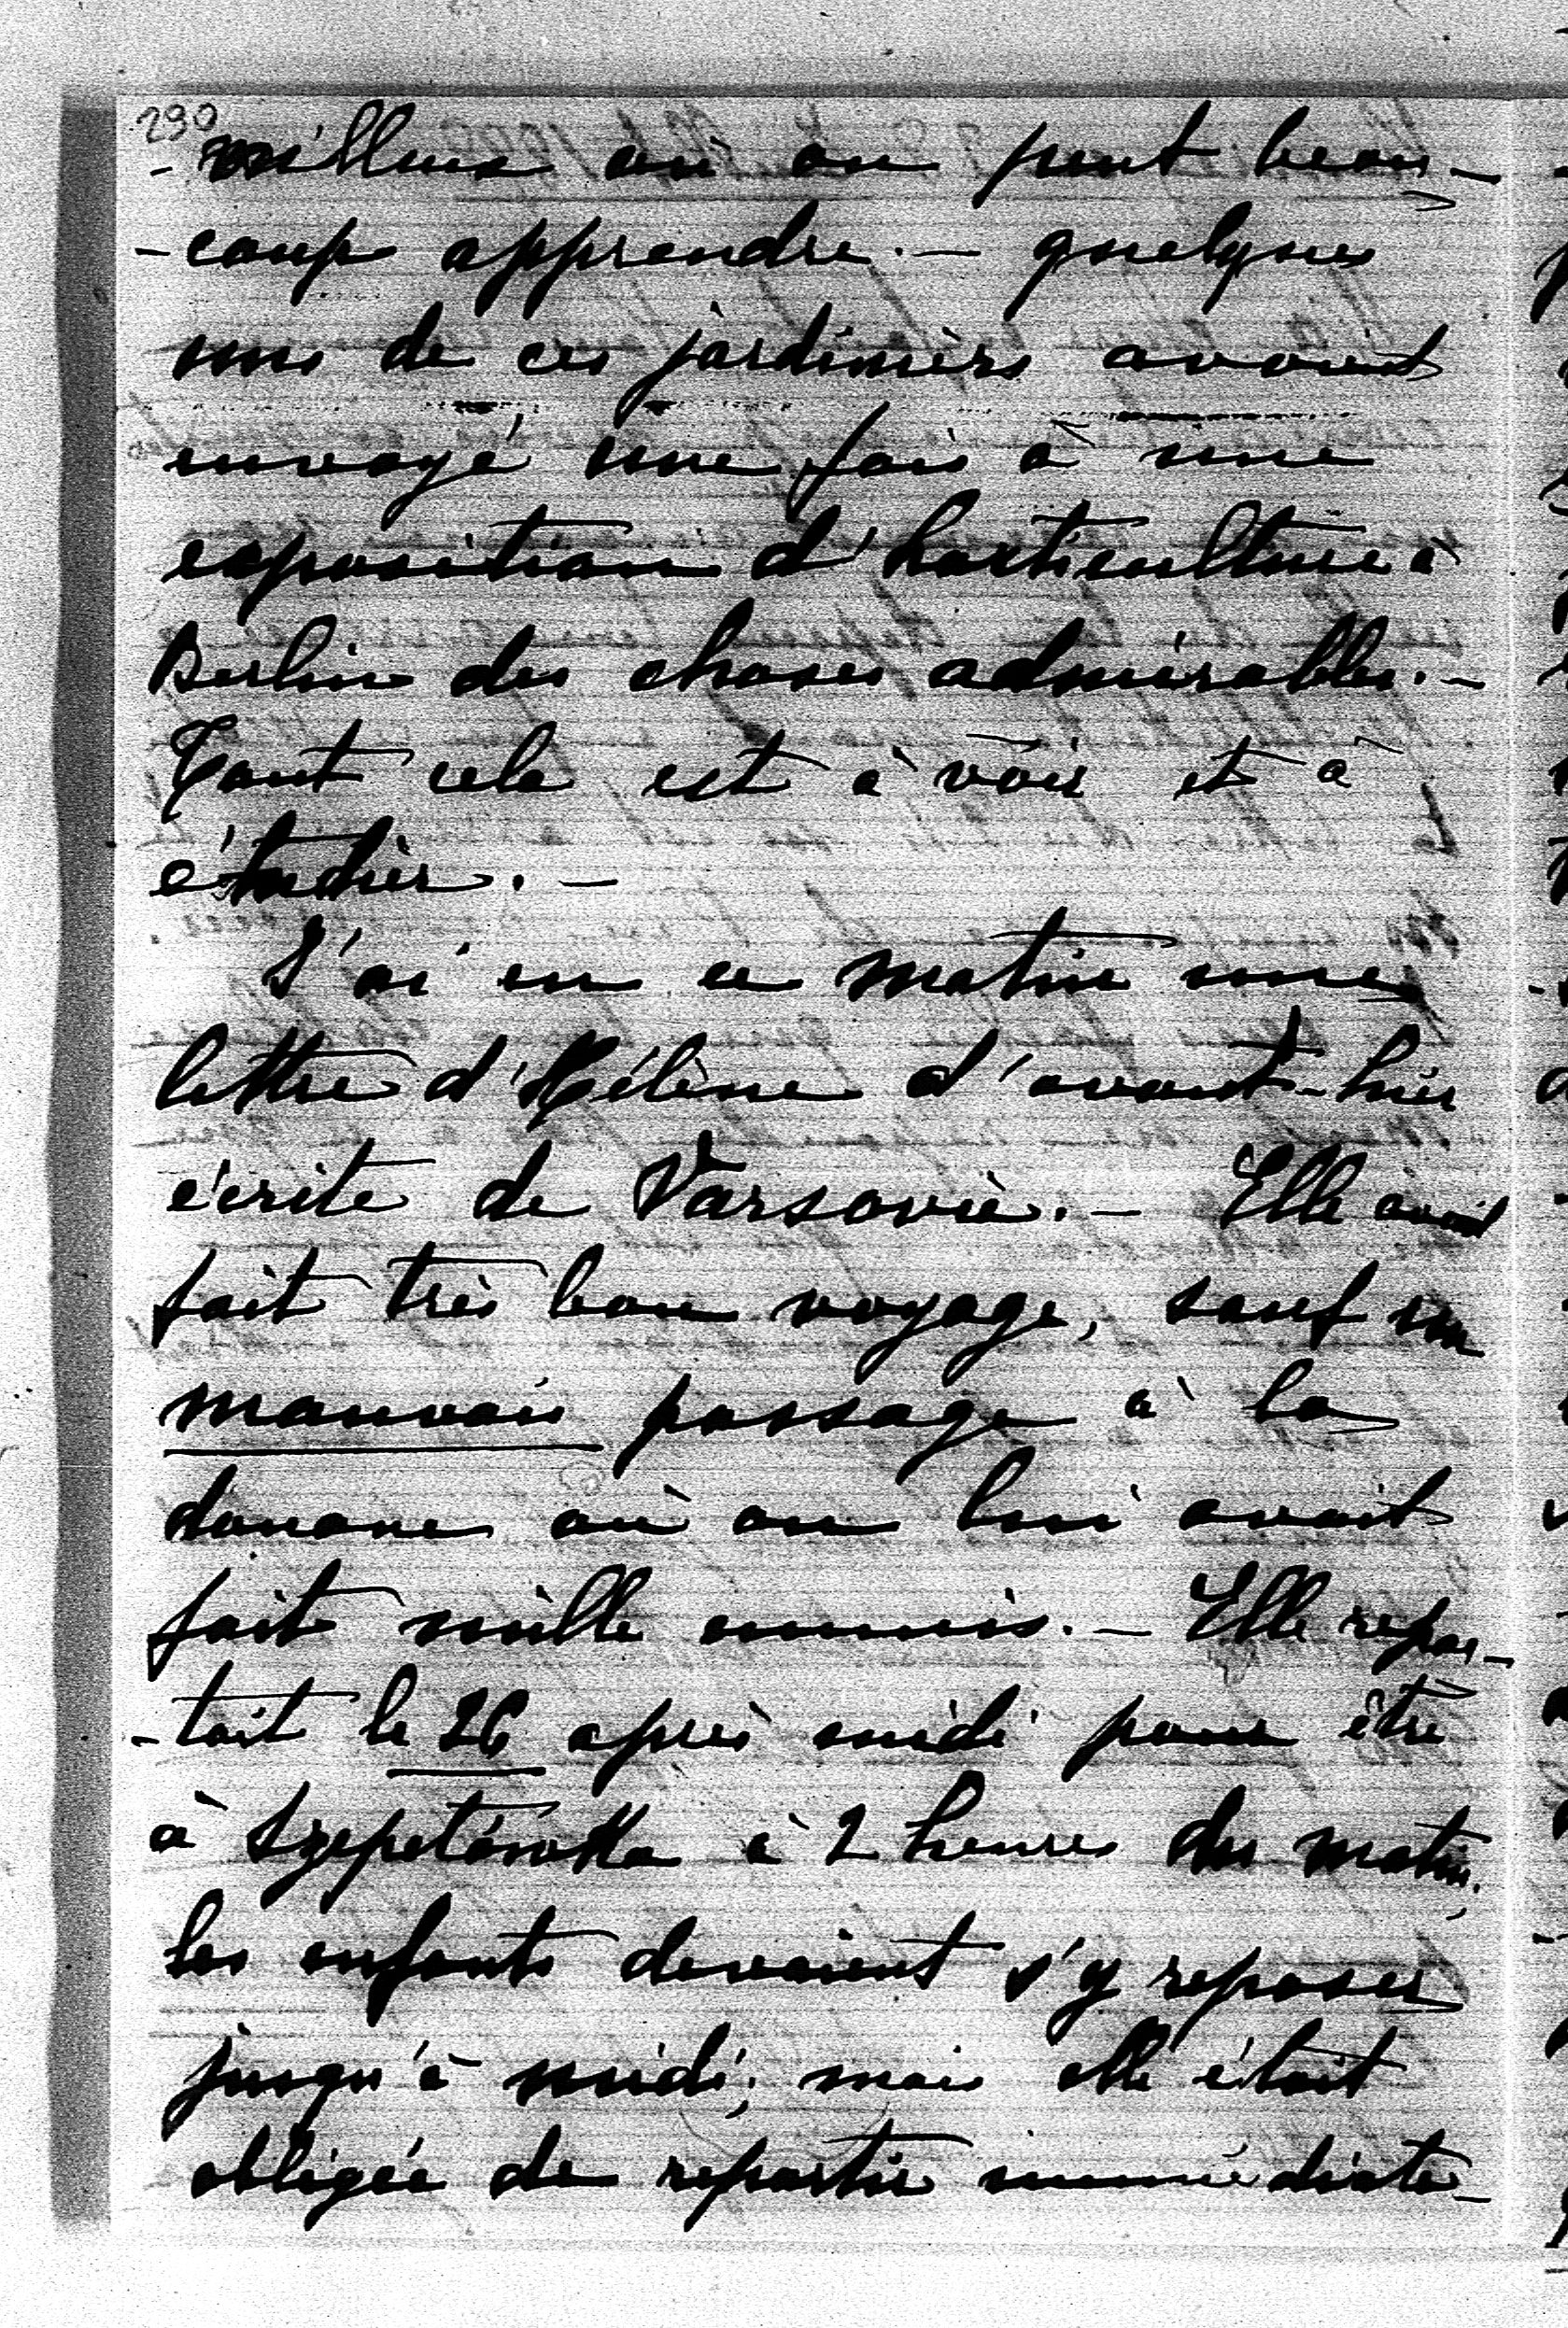 290
-veilleux où on peut beau-
-coup apprendre. — quelques
uns de ces jardiniers avaient
envoyé une fois à une
exposition d'horticulture à
Berlin des choses admirables. —
Tout cela est à voir et à
étudier. —
J'ai eu ce matin une
lettre d'Hélène d'avant-hier
écrite de Varsovie. — Elle avait
fait très bon voyage, sauf un
mauvais passage à la
douane où on lui avait
fait mille ennuis. — Elle repar-
-tait le 26 après midi pour être
à Szepetówka à 2 heures du matin,
les enfants devaient s'y reposer
jusqu'à midi, mais elle était
obligée de repartir immédiate-